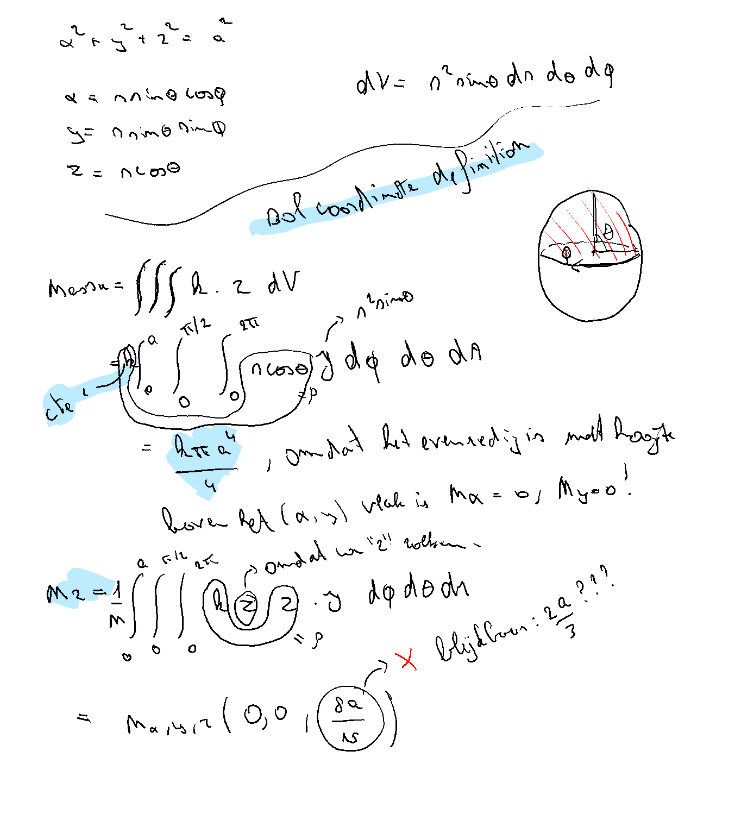 x² + y² + z² = a²
x = r sinθ cosφ
y = r sinθ sinφ
z = r cosθ
dV = r² sinθ dr dθ dφ
bol coordinate definition
θ
φ
Massa = ∫∫∫ k . z dV
r² sinθ
= k ∫₀^a ∫₀^{π/2} ∫₀^{2π} r cosθ J dφ dθ dr
cte
= ρ
= kπa⁴/4 , omdat het evenredig is met hoogte
boven het (x,y) vlak is Mx = 0, My = 0!
omdat we "z" zoeken.
Mz = 1/m ∫₀^a ∫₀^{π/2} ∫₀^{2π} k z z . J dφ dθ dr
= ρ
X blijkbaar: 2a/3 ???
= Mx,y,z (0, 0, 8a/15)